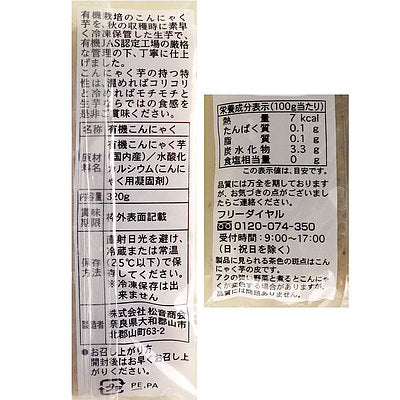 有機栽培のこんにゃく
芋を、秋の収穫時に素早
く冷凍保管した生芋で、
有機JAS認定工場の厳格
な管理の下、丁寧に仕
上げました。
こんにゃく芋の持つ特
性は、温めればコリコリ
と冷めればモチモチと
生芋ならではの食感を
是非ご賞味ください。
名称 有機こんにゃく
原材料名 有機こんにゃく芋
(国内産)/水酸化
カルシウム(こんに
ゃく用凝固剤)
内容量 320g
賞味期限 枠外表面記載
保存方法 直射日光を避け、
冷蔵または常温
(25℃以下)で保
存してください。
※冷凍保存は出
来ません
製造者 株式会社 松音商会
奈良県大和郡山市
北郡山町63-2
●お召し上がり方
開封後はお早くお召し上
がりください
PE,PA
栄養成分表示(100g当たり)
熱量 7kcal
たんぱく質 0.1g
脂質 0.1g
炭水化物 3.3g
食塩相当量 0g
この表示値は、目安です。
品質には万全を期しております
が、お気づきの点がございまし
たらご連絡ください。
フリーダイヤル
0120-074-350
受付時間:9:00~17:00
(日・祝日を除く)
製品に見られる茶色の斑点はこん
にゃく芋の皮です。
アクの強い野菜と煮るとこんにゃく
が変色する場合がありますが、
品質には問題ありません。